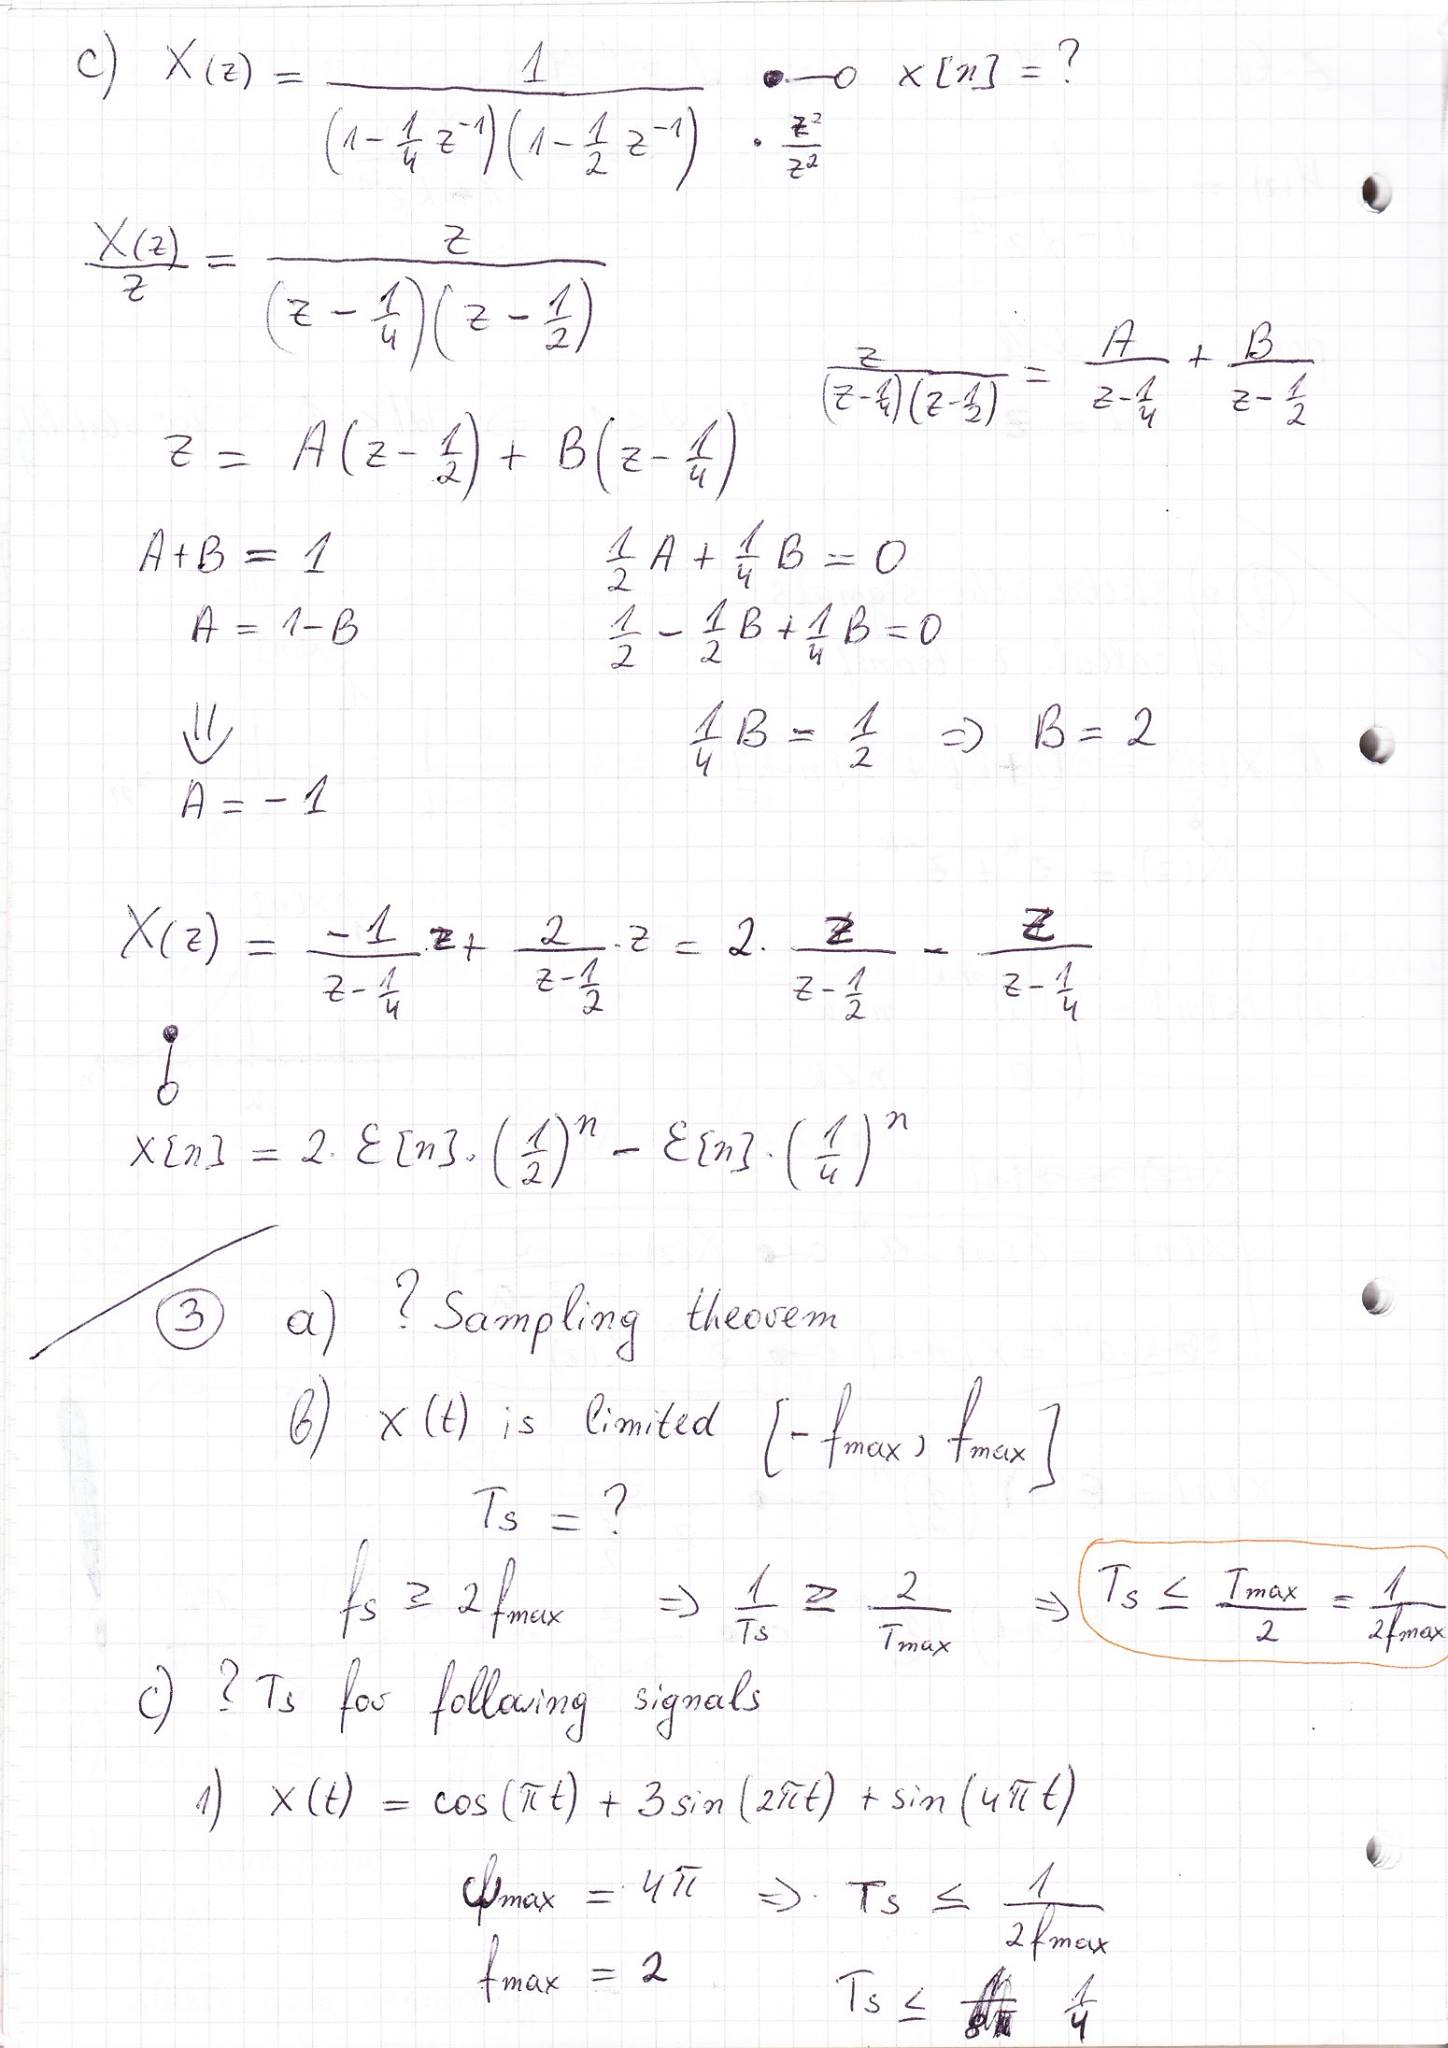 c) X(z) = 1 / ((1 - 1/4 z^-1)(1 - 1/2 z^-1)) ●—○ x[n] = ?
· z²/z²
X(z)/z = z / ((z - 1/4)(z - 1/2))
z / ((z - 1/4)(z - 1/2)) = A / (z - 1/4) + B / (z - 1/2)
z = A(z - 1/2) + B(z - 1/4)
A+B = 1    1/2 A + 1/4 B = 0
A = 1-B    1/2 - 1/2 B + 1/4 B = 0
⇓    1/4 B = 1/2 ⇒ B = 2
A = -1
X(z) = -1 / (z - 1/4) · z + 2 / (z - 1/2) · z = 2 · z / (z - 1/2) - z / (z - 1/4)
●—○
x[n] = 2 · ε[n] · (1/2)^n - ε[n] · (1/4)^n
③ a) ? Sampling theorem
b) x(t) is limited [-fmax, fmax]
Ts = ?
fs ≥ 2fmax ⇒ 1/Ts ≥ 2/Tmax ⇒ Ts ≤ Tmax/2 = 1/(2fmax)
c) ? Ts for following signals
1) x(t) = cos(πt) + 3sin(2πt) + sin(4πt)
ωmax = 4π ⇒ Ts ≤ 1/(2fmax)
fmax = 2    Ts ≤ 1/4